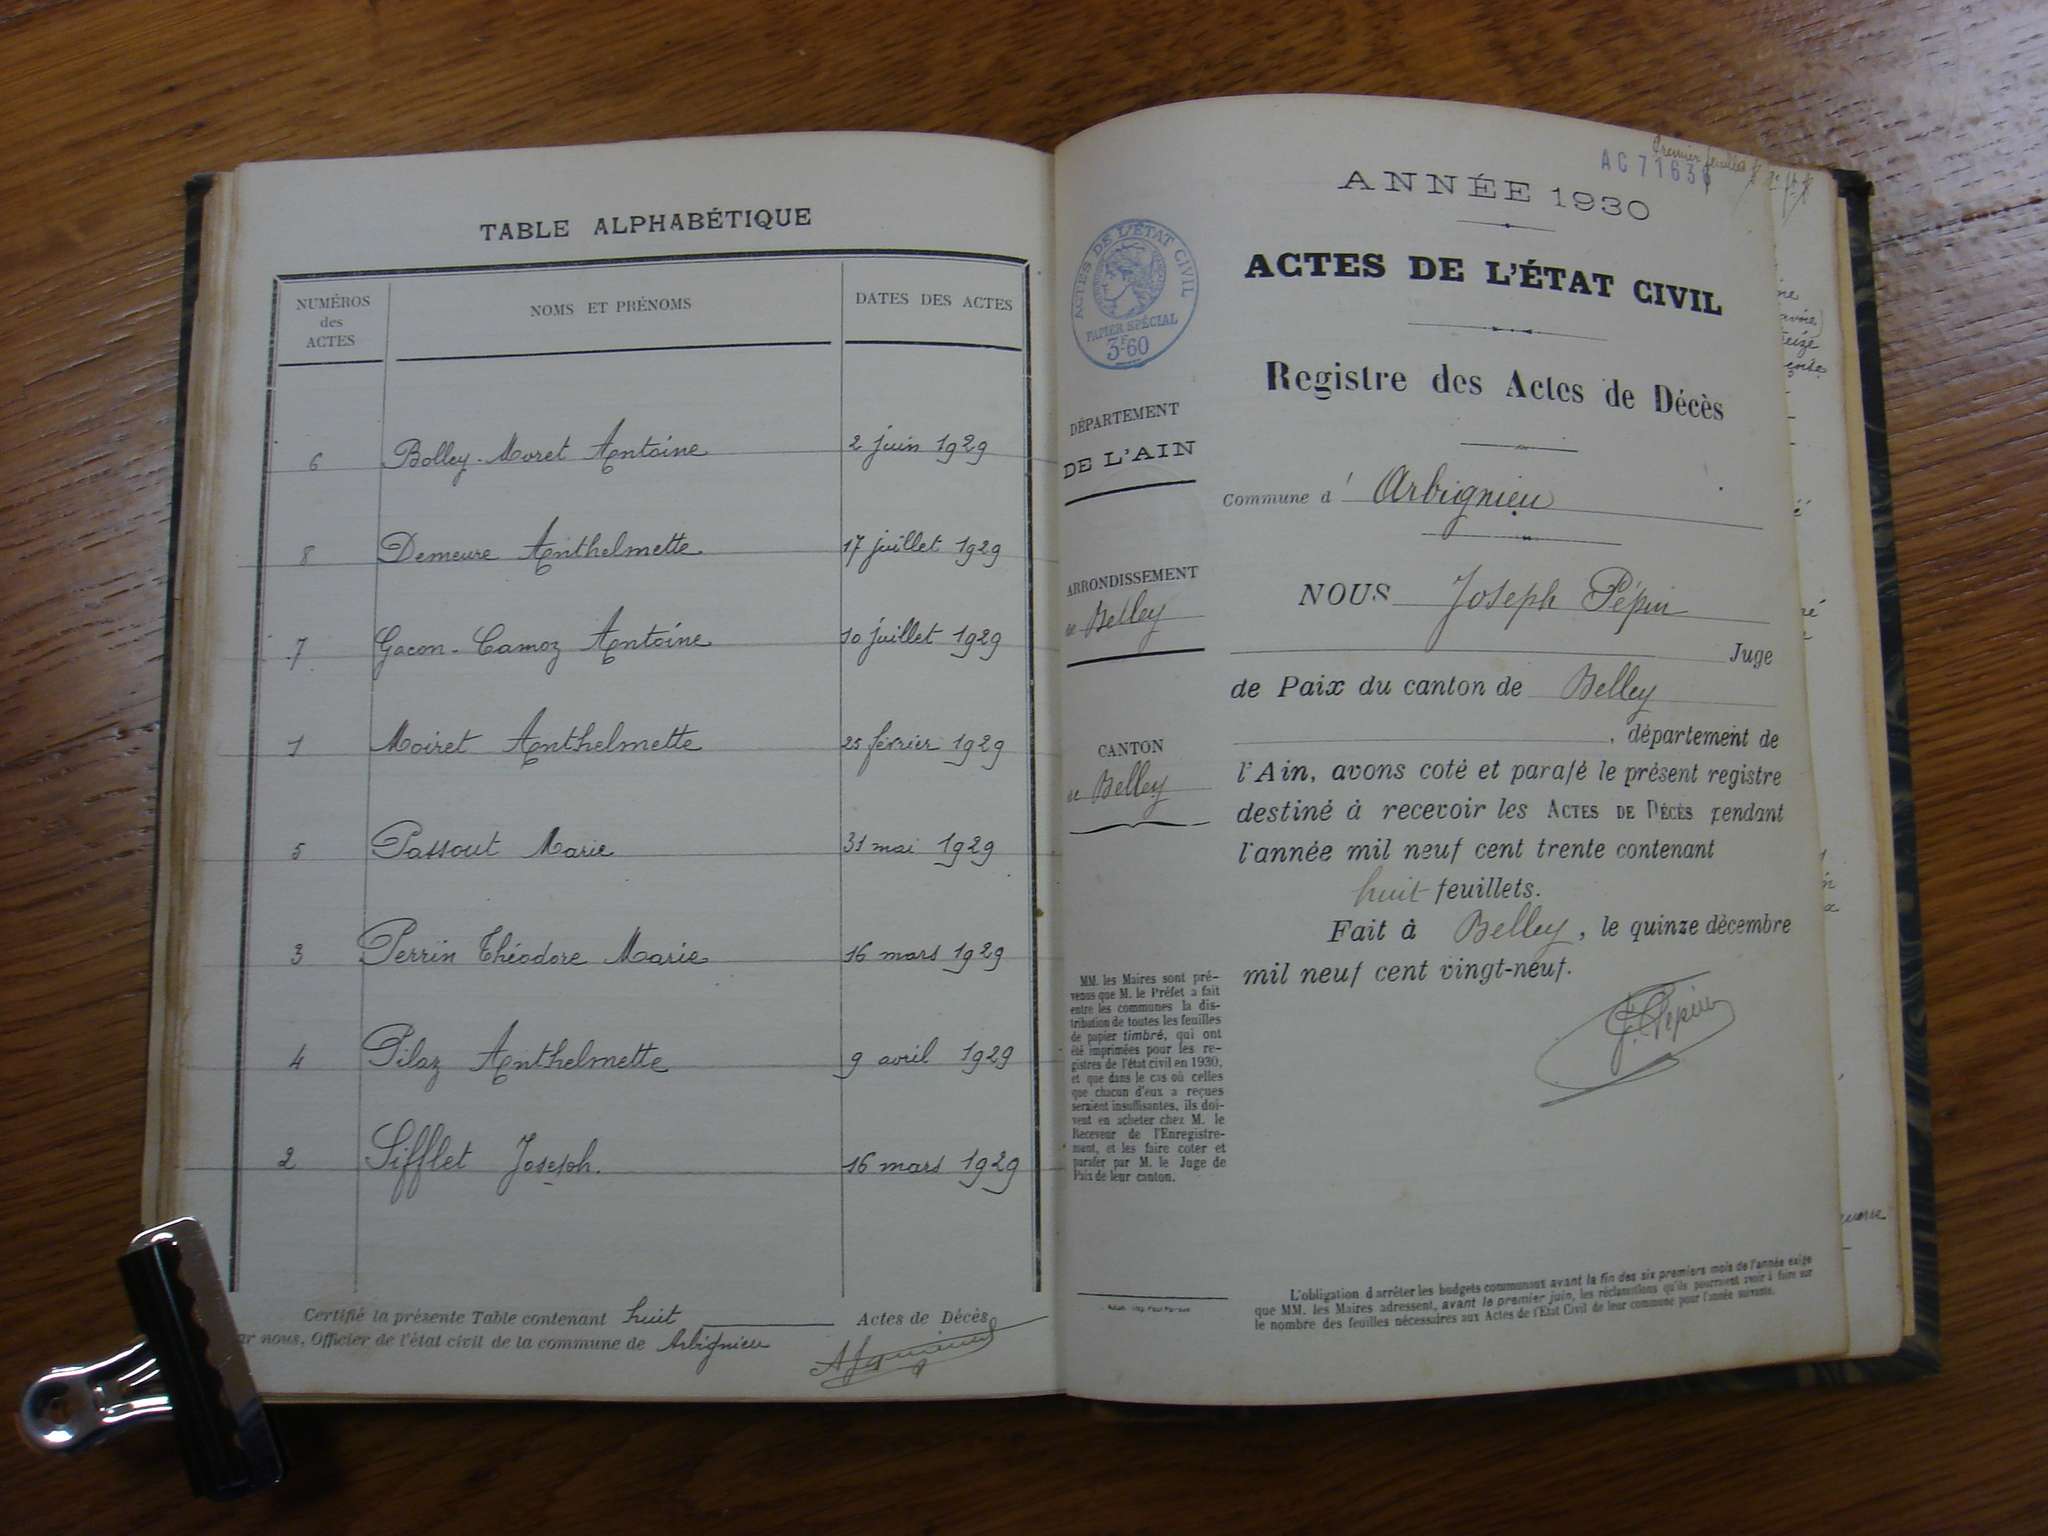 TABLE ALPHABÉTIQUE
NUMÉROS des ACTES
NOMS ET PRÉNOMS
DATES DES ACTES
6 Bolley-Moret Antoine 2 juin 1929
8 Demeure Anthelmette 17 juillet 1929
7 Gacon-Camoz Antoine 10 juillet 1929
1 Moiret Anthelmette 25 février 1929
5 Passout Marie 31 mai 1929
3 Perrin Théodore Marie 16 mars 1929
4 Pilaz Anthelmette 9 avril 1929
2 Sifflet Joseph. 16 mars 1929
Certifié la présente Table contenant huit Actes de Décès
ar nous, Officier de l'état civil de la commune de Arbignieu
AC 71636
Premier feuillet
ANNÉE 1930
ACTES DE L'ÉTAT CIVIL
PAPIER SPÉCIAL
3F60
ACTES DE L'ÉTAT CIVIL
Registre des Actes de Décès
DÉPARTEMENT
DE L'AIN
Commune d' Arbignieu
ARRONDISSEMENT
de Belley
CANTON
de Belley
NOUS Joseph Pépin
Juge
de Paix du canton de Belley
, département de
l'Ain, avons coté et parafé le présent registre
destiné à recevoir les ACTES DE DÉCÈS pendant
l'année mil neuf cent trente contenant
huit feuillets.
Fait à Belley, le quinze décembre
mil neuf cent vingt-neuf.
J. Pépin
MM. les Maires sont pré-
venus que M. le Préfet a fait
entre les communes la dis-
tribution de toutes les feuilles
de papier timbré, qui ont
été imprimées pour les re-
gistres de l'état civil en 1930,
et que dans le cas où celles
que chacun d'eux a reçues
seraient insuffisantes, ils doi-
vent en acheter chez M. le
Receveur de l'Enregistre-
ment, et les faire coter et
parafer par M. le Juge de
Paix de leur canton.
L'obligation d'arrêter les budgets communaux avant la fin des six premiers mois de l'année exige
que MM. les Maires adressent, avant le premier juin, les réclamations qu'ils pourraient avoir à faire sur
le nombre des feuilles nécessaires aux Actes de l'État Civil de leur commune pour l'année suivante.